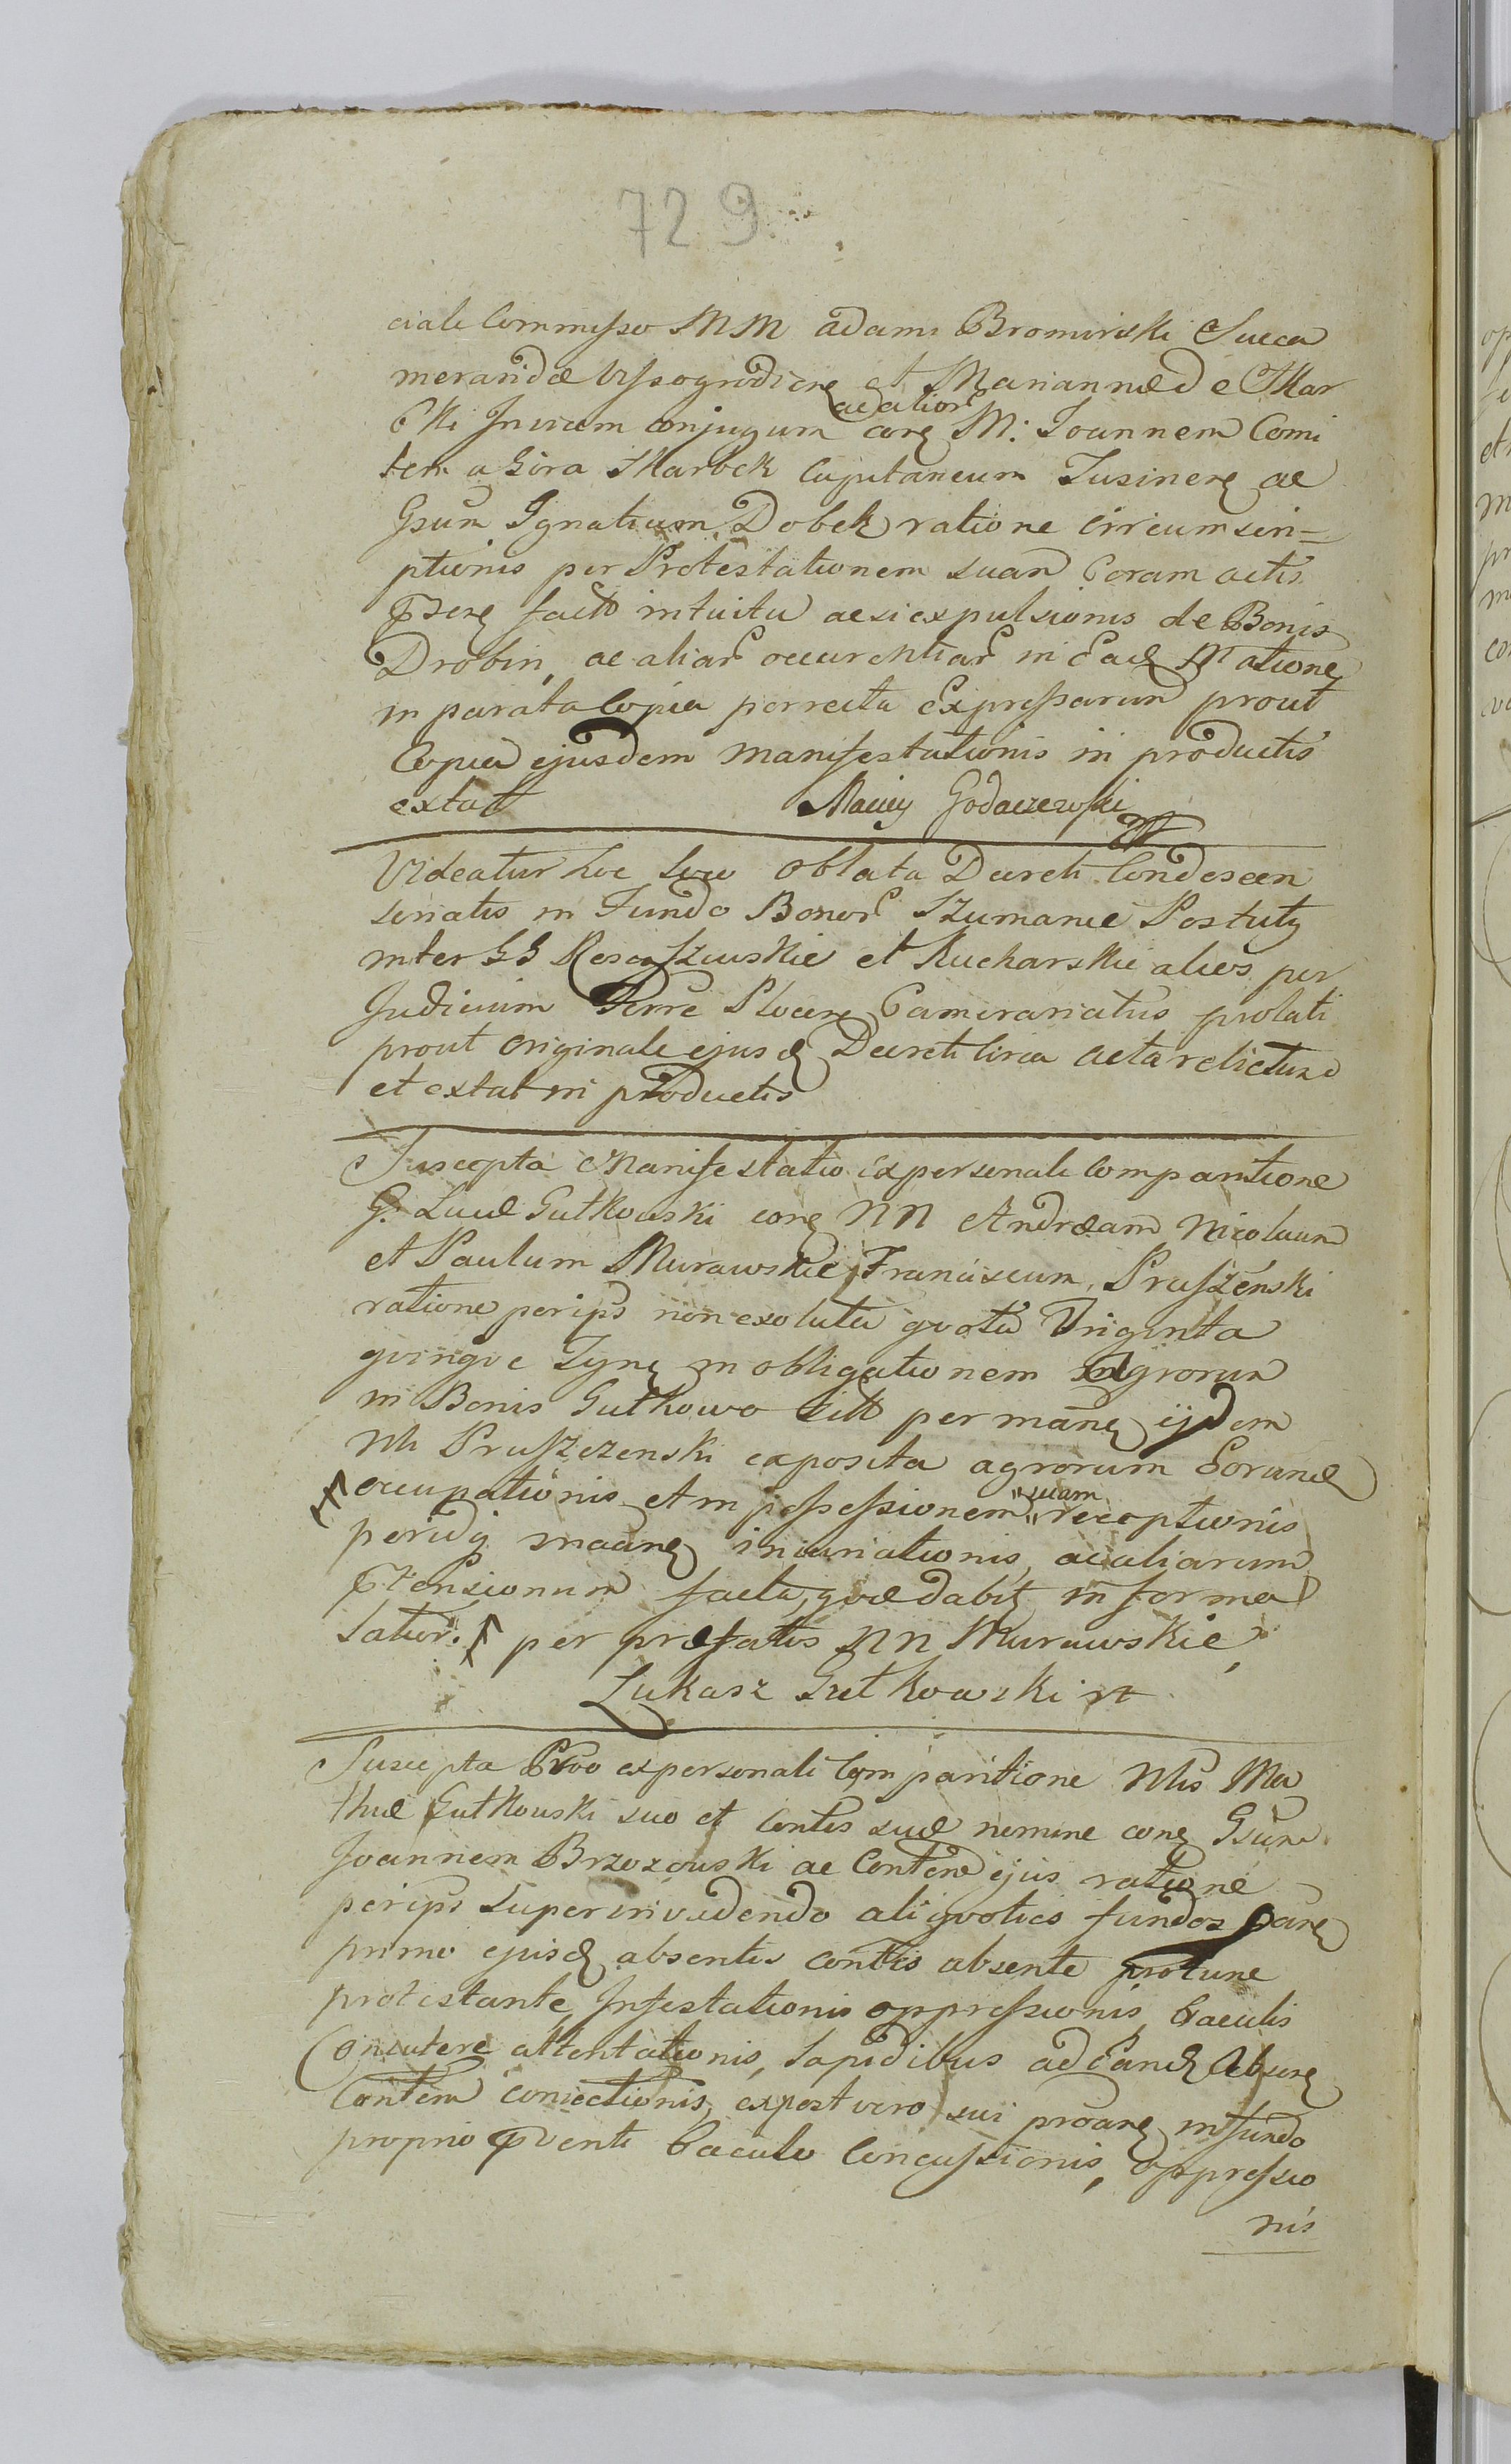 729
ciali Commisso MM Adami Bromirski Succa
meraridæ Vissogrodiens et Mariannæ de Skar
bki Invicem conjugum ac alior coñ M: Joannem Comi
tem a Góra Skarbek Capitaneum Tusinens ac
Gsum Ignatium Dobek ratione circumscri=
ptionis per Protestationem suam Coram actis
Psens factõ intuitu acsi expulsionis de Bonis
Drobin, ac aliar occurentiar in Ead Mãtione
in parata Copia porrecta Expressarum prout
Copia ejusdem Manifestationis in productis
extat Maciey Godaczewski
Videatur hoc loco Oblata Decreti Condescen
sorialis in Fundo Bonor Szumanie Postuty
inter GG Rosciszewskie et Kucharskie alios per
Judicium Terre Plocen Camerariatus prolati
prout Originale ejusd Decreti circa acta relictum
et extat in productis
Suscepta Manifestatio ex personali comparitione
G. Lucæ Gutkowski coñ NN Andræam Nicolaum
et Paulum Murawskie, Franciscum Prusżenski
ratione per ips non exoluta qvota Triginta
qvinqve Tyn in obligationem Agrorum
in Bonis Gutkowo sitt per man ijdem
Nli Pruszczenski exposita agrorum Eorund
occupationis et in possessionem "suam" receptionis
perid madn iniuriationis, ac aliarum
Ptensionum facta, qvæ dabit in forma
latior. per præfatos NN Murawskie,
Łukasz Gutkowski
Suscepta Prõo ex personali Comparitione Nlis Ma
thiæ Gutkowski suo et Contis suæ nomine coñ Gsum
Joannem Brzozowski ac Contem ejus ratione
per ips superinvadendo aliqvoties fundos
primo ejusd absentis contis absente protunc
protestante, Infestationis oppressionis, baculis
Concutere attentationis, lapidibus ad Eand Absen
Contem coniectionis, expost vero sui proan in fundo
proprio Pventi baculo Concussionis, oppressio
nis